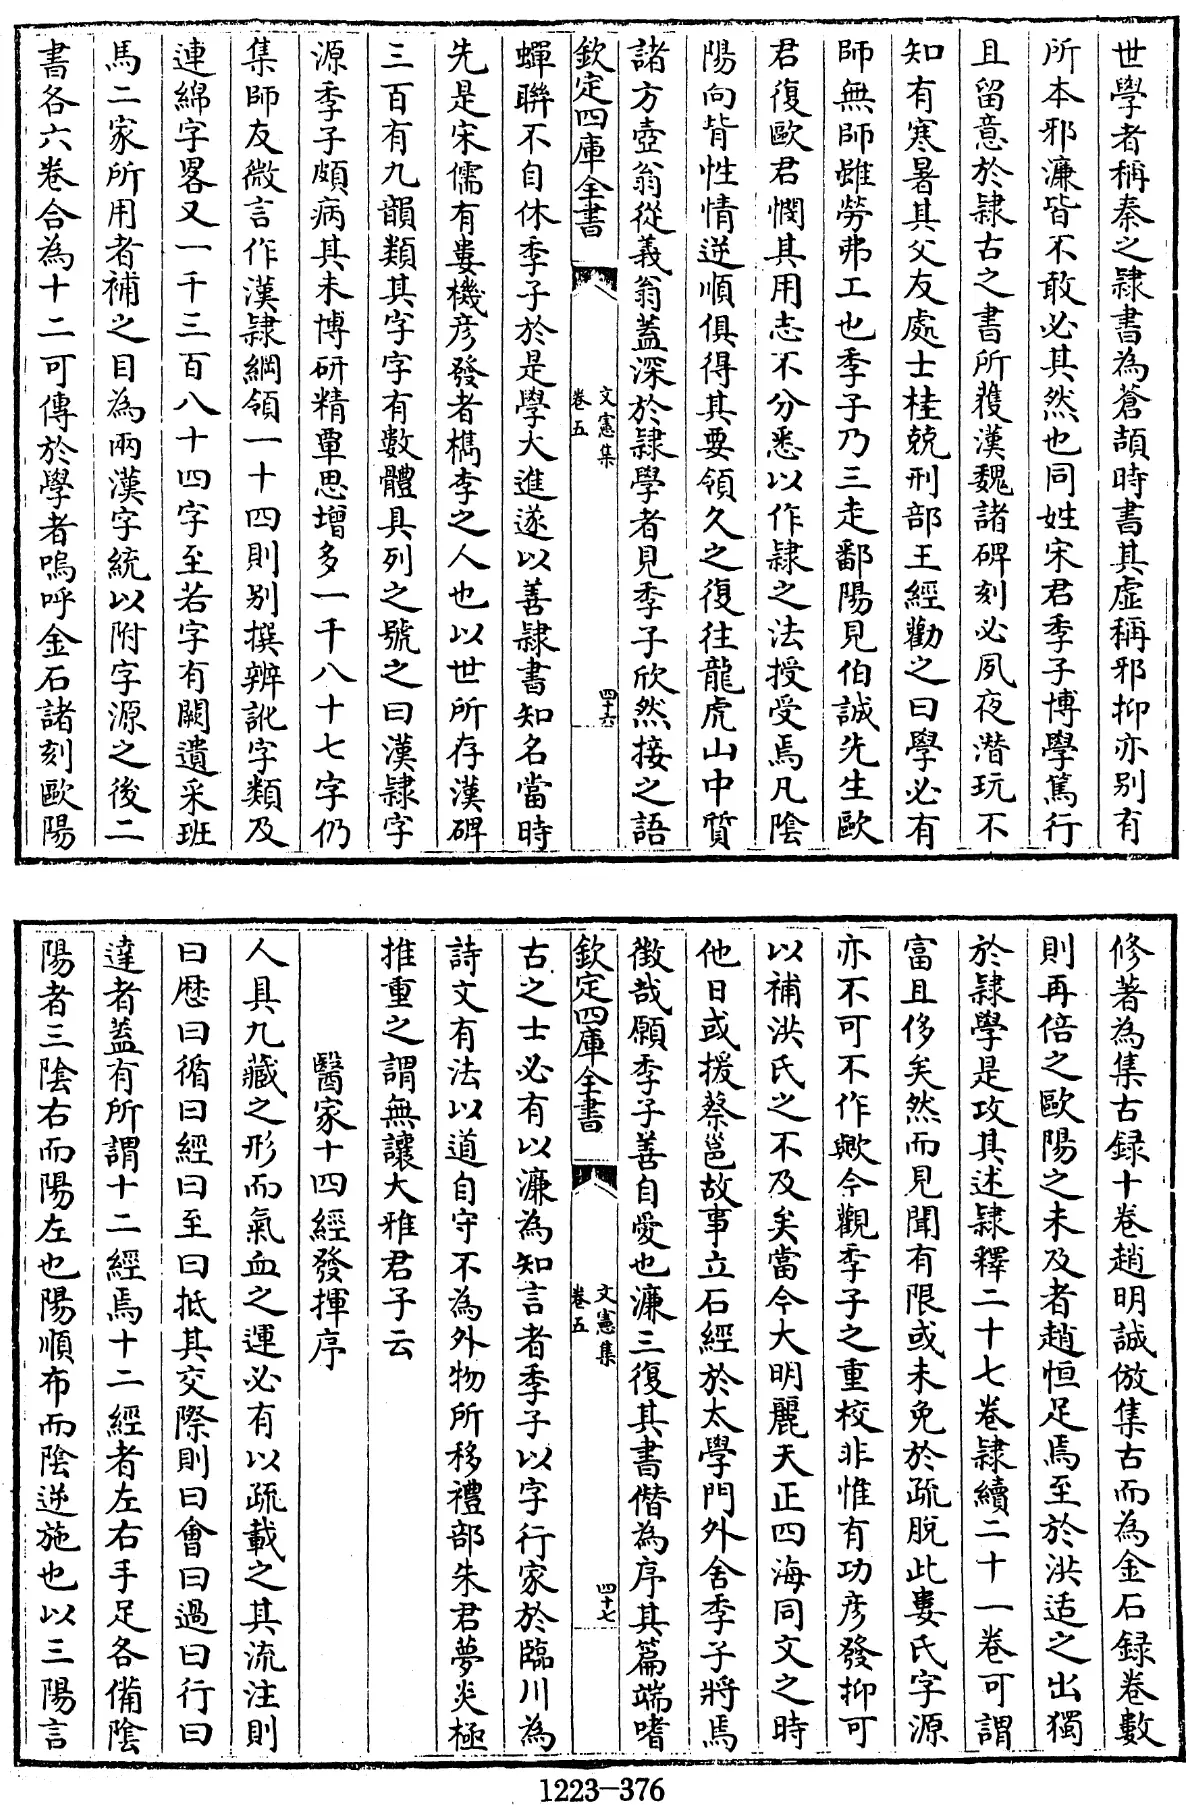 世學者稱秦之隷書為蒼頡時書其虛稱邪抑亦別有
所本邪濂皆不敢必其然也同姓宋君季子博學篤行
且留意於隷古之書所獲漢魏諸碑刻必夙夜潛玩不
知有寒暑其父友處士桂兢刑部王經勸之曰學必有
師無師雖勞弗工也季子乃三走鄱陽見伯誠先生歐
君復歐君憫其用志不分悉以作隷之法授受焉凡陰
陽向背性情逆順俱得其要領久之復往龍虎山中質
諸方壺翁從義翁蓋深於隷學者見季子欣然接之語
欽定四庫全書
文憲集
卷五
四十六
蟬聯不自休季子於是學大進遂以善隷書知名當時
先是宋儒有婁機彦發者檇李之人也以世所存漢碑
三百有九韻類其字字有數體具列之號之曰漢隷字
源季子頗病其未博研精覃思增多一千八十七字仍
集師友微言作漢隷綱領一十四則別撰辨訛字類及
連綿字畧又一千三百八十四字至若字有闕遺采班
馬二家所用者補之目為兩漢字統以附字源之後二
書各六卷合為十二可傳於學者嗚呼金石諸刻歐陽
修著為集古録十卷趙明誠倣集古而為金石録卷數
則再倍之歐陽之未及者趙恒足焉至於洪适之出獨
於隷學是攻其述隷釋二十七卷隷續二十一卷可謂
富且侈矣然而見聞有限或未免於疏脫此婁氏字源
亦不可不作歟今觀季子之重校非惟有功彦發抑可
以補洪氏之不及矣當今大明麗天正四海同文之時
他日或援蔡邕故事立石經於太學門外舍季子將焉
徵哉願季子善自愛也濂三復其書僭為序其篇端嗜
欽定四庫全書
文憲集
卷五
四十七
古之士必有以濂為知言者季子以字行家於臨川為
詩文有法以道自守不為外物所移禮部朱君夢炎極
推重之謂無讓大雅君子云
醫家十四經發揮序
人具九藏之形而氣血之運必有以疏載之其流注則
曰歴曰循曰經曰至曰抵其交際則曰會曰過曰行曰
達者葢有所謂十二經焉十二經者左右手足各備陰
陽者三陰右而陽左也陽順布而陰逆施也以三陽言
1223-376